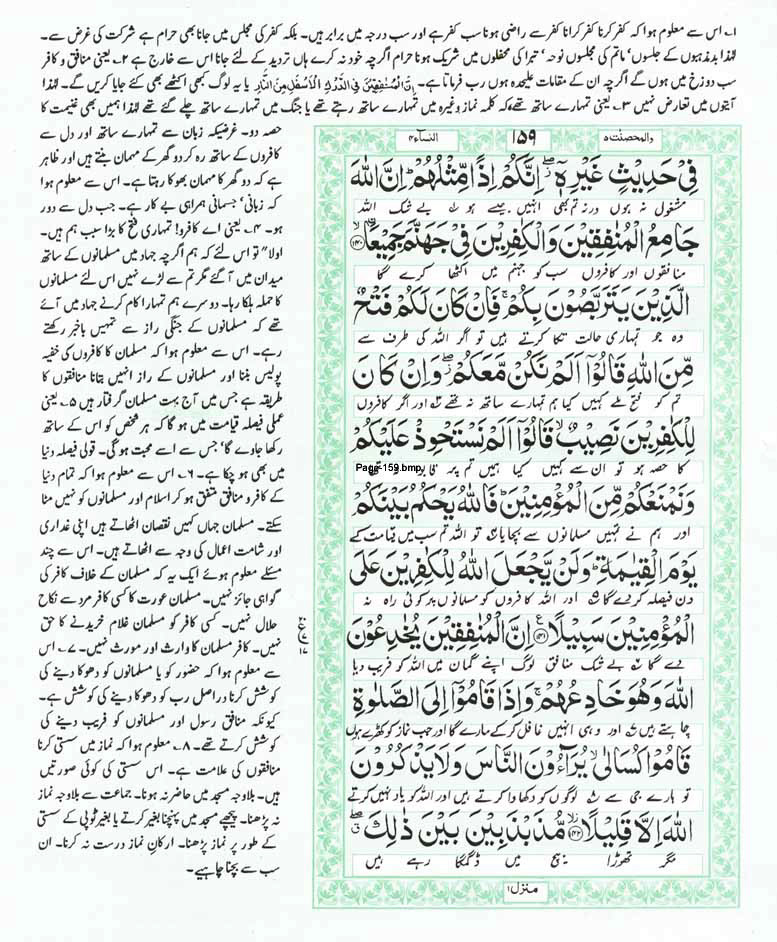 ۱۔ اس سے معلوم ہوا کہ کفر کرنا کفر کرانا کفر سے راضی ہونا سب کفر ہے اور سب درجہ میں برابر ہیں۔ بلکہ کفر کی مجلس میں جانا بھی حرام ہے شرکت کی غرض سے۔
لہٰذا بدمذہبوں کے جلسوں، ماتم کی مجلسوں نوحہ، تبرا کی محفلوں میں شریک ہونا حرام اگرچہ خود نہ کرے ہاں تردید کے لئے جانا اس سے خارج ہے ۲۔ یعنی منافق و کافر
سب دوزخ میں ہوں گے اگرچہ ان کے مقامات علیحدہ ہوں رب فرماتا ہے۔ اِنَّ الْمُنٰفِقِیْنَ فِی الدَّرْكِ الْاَسْفَلِ مِنَ النَّارِ یا یہ لوگ کبھی اکٹھے بھی کئے جایا کریں گے۔ لہٰذا
آیتوں میں تعارض نہیں ۳۔ یعنی تمہارے ساتھ تھے کہ کلمہ نماز وغیرہ میں تمہارے ساتھ رہتے تھے یا جنگ میں تمہارے ساتھ چلے گئے تھے لہٰذا ہمیں بھی غنیمت کا
حصہ دو۔ غرضیکہ زبان سے تمہارے ساتھ اور دل سے
کافروں کے ساتھ رہ کر دو گھر کے مہمان بنتے ہیں اور ظاہر
ہے کہ دو گھر کا مہمان بھوکا رہتا ہے۔ اس سے معلوم ہوا
کہ زبانی، جسمانی ہمراہی بے کار ہے۔ جب دل سے دور
ہو۔ ۴۔ یعنی اے کافرو! تمہاری فتح کا بڑا سبب ہم ہیں۔
اولاً تو اس لئے کہ ہم اگرچہ جہاد میں مسلمانوں کے ساتھ
میدان میں آئے مگر تم سے لڑے نہیں اس لئے مسلمانوں
کا حملہ ہلکا رہا۔ دوسرے ہم تمہارا کام کرنے جہاد میں آئے
تھے کہ مسلمانوں کے جنگی راز سے تمہیں باخبر رکھتے
رہے۔ اس سے معلوم ہوا کہ مسلمان کا کافروں کی خفیہ
پولیس بننا اور مسلمانوں کے راز انہیں بتانا منافقوں کا
طریقہ ہے جس میں آج بہت مسلمان گرفتار ہیں ۵۔ یعنی
عملی فیصلہ قیامت میں ہو گا کہ ہر شخص کو اس کے ساتھ
رکھا جاوے گا، جس سے اسے محبت ہوگی۔ قولی فیصلہ دنیا
میں بھی ہو چکا ہے۔ ۶۔ اس سے معلوم ہوا کہ تمام دنیا
کے کافر و منافق متفق ہو کر اسلام اور مسلمانوں کو نہیں مٹا
سکتے۔ مسلمان جہاں کہیں نقصان اٹھاتے ہیں اپنی غداری
اور شامت اعمال کی وجہ سے اٹھاتے ہیں۔ اس سے چند
مسئلے معلوم ہوئے ایک یہ کہ مسلمان کے خلاف کافر کی
گواہی جائز نہیں۔ مسلمان عورت کا کسی کافر مرد سے نکاح
حلال نہیں۔ کسی کافر کو مسلمان غلام خریدنے کا حق
نہیں۔ کافر مسلمان کا وارث اور مورث نہیں۔ ۷۔ اس
سے معلوم ہوا کہ حضور کو یا مسلمانوں کو دھوکا دینے کی
کوشش کرنا دراصل رب کو دھوکا دینے کی کوشش ہے۔
کیونکہ منافق رسول اور مسلمانوں کو فریب دینے کی
کوشش کرتے تھے۔ ۸۔ معلوم ہوا کہ نماز میں سستی کرنا
منافقوں کی علامت ہے۔ اس سستی کی کوئی صورتیں
ہیں۔ بلاوجہ مسجد میں حاضر نہ ہونا۔ جماعت سے بلاوجہ نماز
نہ پڑھنا۔ پیچھے مسجد میں پہنچنا بغیر کرتے یا بغیر ٹوپی کے سستی
کے طور پر نماز پڑھنا۔ ارکانِ نماز درست نہ کرنا۔ ان
سب سے بچنا چاہیے۔
والمحصنٰت ۵ ۱۵۹ النسآء ۴
فِیْ حَدِیْثٍ غَیْرِهٖۤ ۖ اِنَّكُمْ اِذًا مِّثْلُهُمْ ؕ اِنَّ اللّٰهَ
مشغول نہ ہوں ورنہ تم بھی انہیں جیسے ہو بے شک اللہ
جَامِعُ الْمُنٰفِقِیْنَ وَ الْكٰفِرِیْنَ فِیْ جَهَنَّمَ جَمِیْعَاۙ ﴿۱۴۰﴾
منافقوں اور کافروں سب کو جہنم میں اکٹھا کرے گا
الَّذِیْنَ یَتَرَبَّصُوْنَ بِكُمْ ۚ فَاِنْ كَانَ لَكُمْ فَتْحٌ
وہ جو تمہاری حالت تکا کرتے ہیں تو اگر اللہ کی طرف سے
مِّنَ اللّٰهِ قَالُوْۤا اَلَمْ نَكُنْ مَّعَكُمْ ۖ وَ اِنْ كَانَ
تم کو فتح ملے کہیں کیا ہم تمہارے ساتھ نہ تھے اور اگر کافروں
لِلْكٰفِرِیْنَ نَصِیْبٌ ۙ قَالُوْۤا اَلَمْ نَسْتَحْوِذْ عَلَیْكُمْ
کا حصہ ہو تو ان سے کہیں کیا ہمیں تم پر
Page-159.bmp
وَ نَمْنَعْكُمْ مِّنَ الْمُؤْمِنِیْنَ ؕ فَاللّٰهُ یَحْكُمُ بَیْنَكُمْ
اور ہم نے تمہیں مسلمانوں سے بچایا تو اللہ تم سب میں قیامت کے
یَوْمَ الْقِیٰمَةِ ؕ وَ لَنْ یَّجْعَلَ اللّٰهُ لِلْكٰفِرِیْنَ عَلَی
دن فیصلہ کر دے گا اور اللہ کافروں کو مسلمانوں پر کوئی راہ نہ
الْمُؤْمِنِیْنَ سَبِیْلًا ﴿۱۴۱﴾ اِنَّ الْمُنٰفِقِیْنَ یُخٰدِعُوْنَ
دے گا بے شک منافق لوگ اپنے گمان میں اللہ کو فریب دیا
اللّٰهَ وَ هُوَ خَادِعُهُمْ ۚ وَ اِذَا قَامُوْۤا اِلَی الصَّلٰوةِ
چاہتے ہیں اور وہی انہیں غافل کر کے مارے گا اور جب نماز کو کھڑے ہوں
قَامُوْا كُسَالٰی ۙ یُرَآءُوْنَ النَّاسَ وَ لَا یَذْكُرُوْنَ
تو ہارے جی سے لوگوں کو دکھاوا کرتے ہیں اور اللہ کو یاد نہیں کرتے
اللّٰهَ اِلَّا قَلِیْلًا ﴿۱۴۲﴾ مُّذَبْذَبِیْنَ بَیْنَ ذٰلِكَ ۖ
مگر تھوڑا بیچ میں ڈگمگا رہے ہیں
منزل ۱